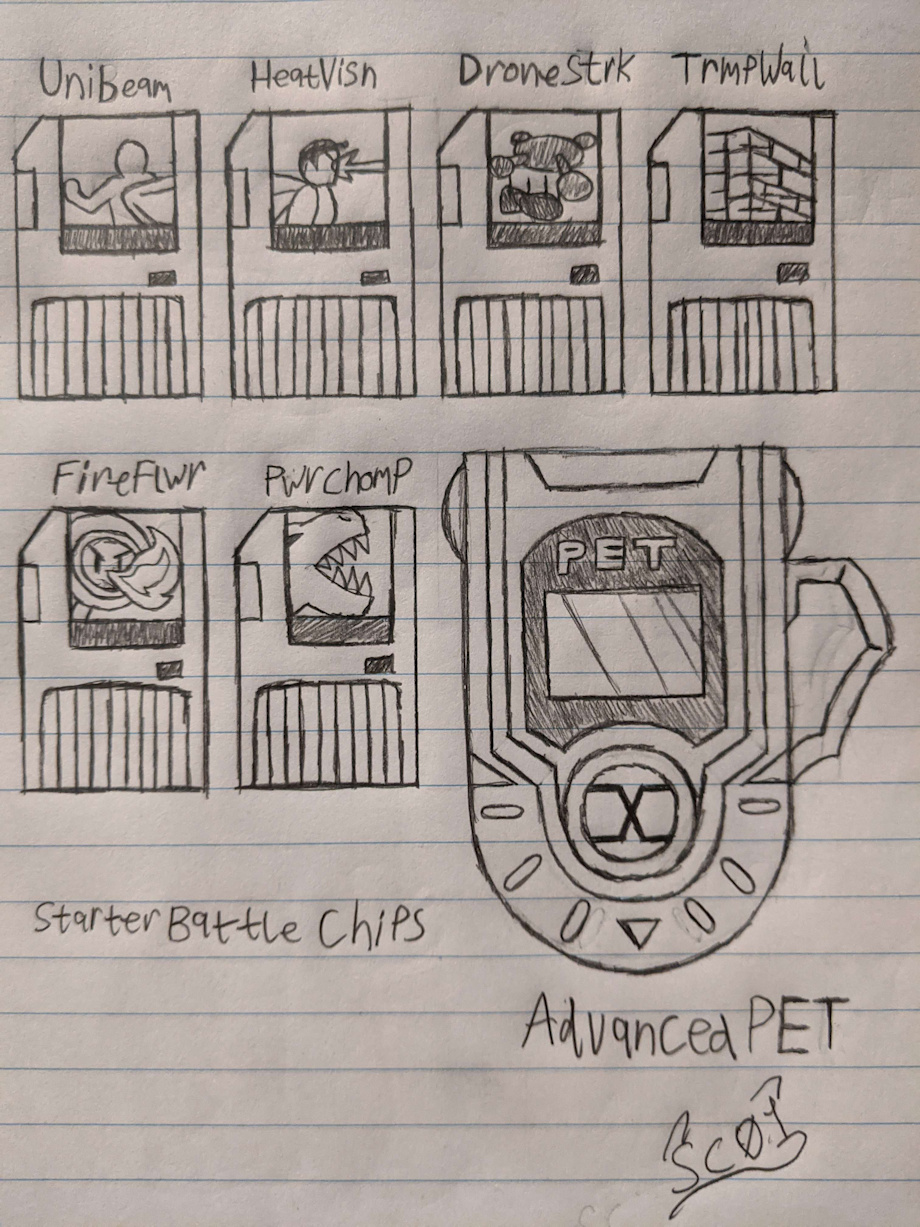 UniBeam HeatVisn DroneStrk TrmpWall
FireFlwr PwrChomP
PET
X
Starter Battle Chips
Advanced PET